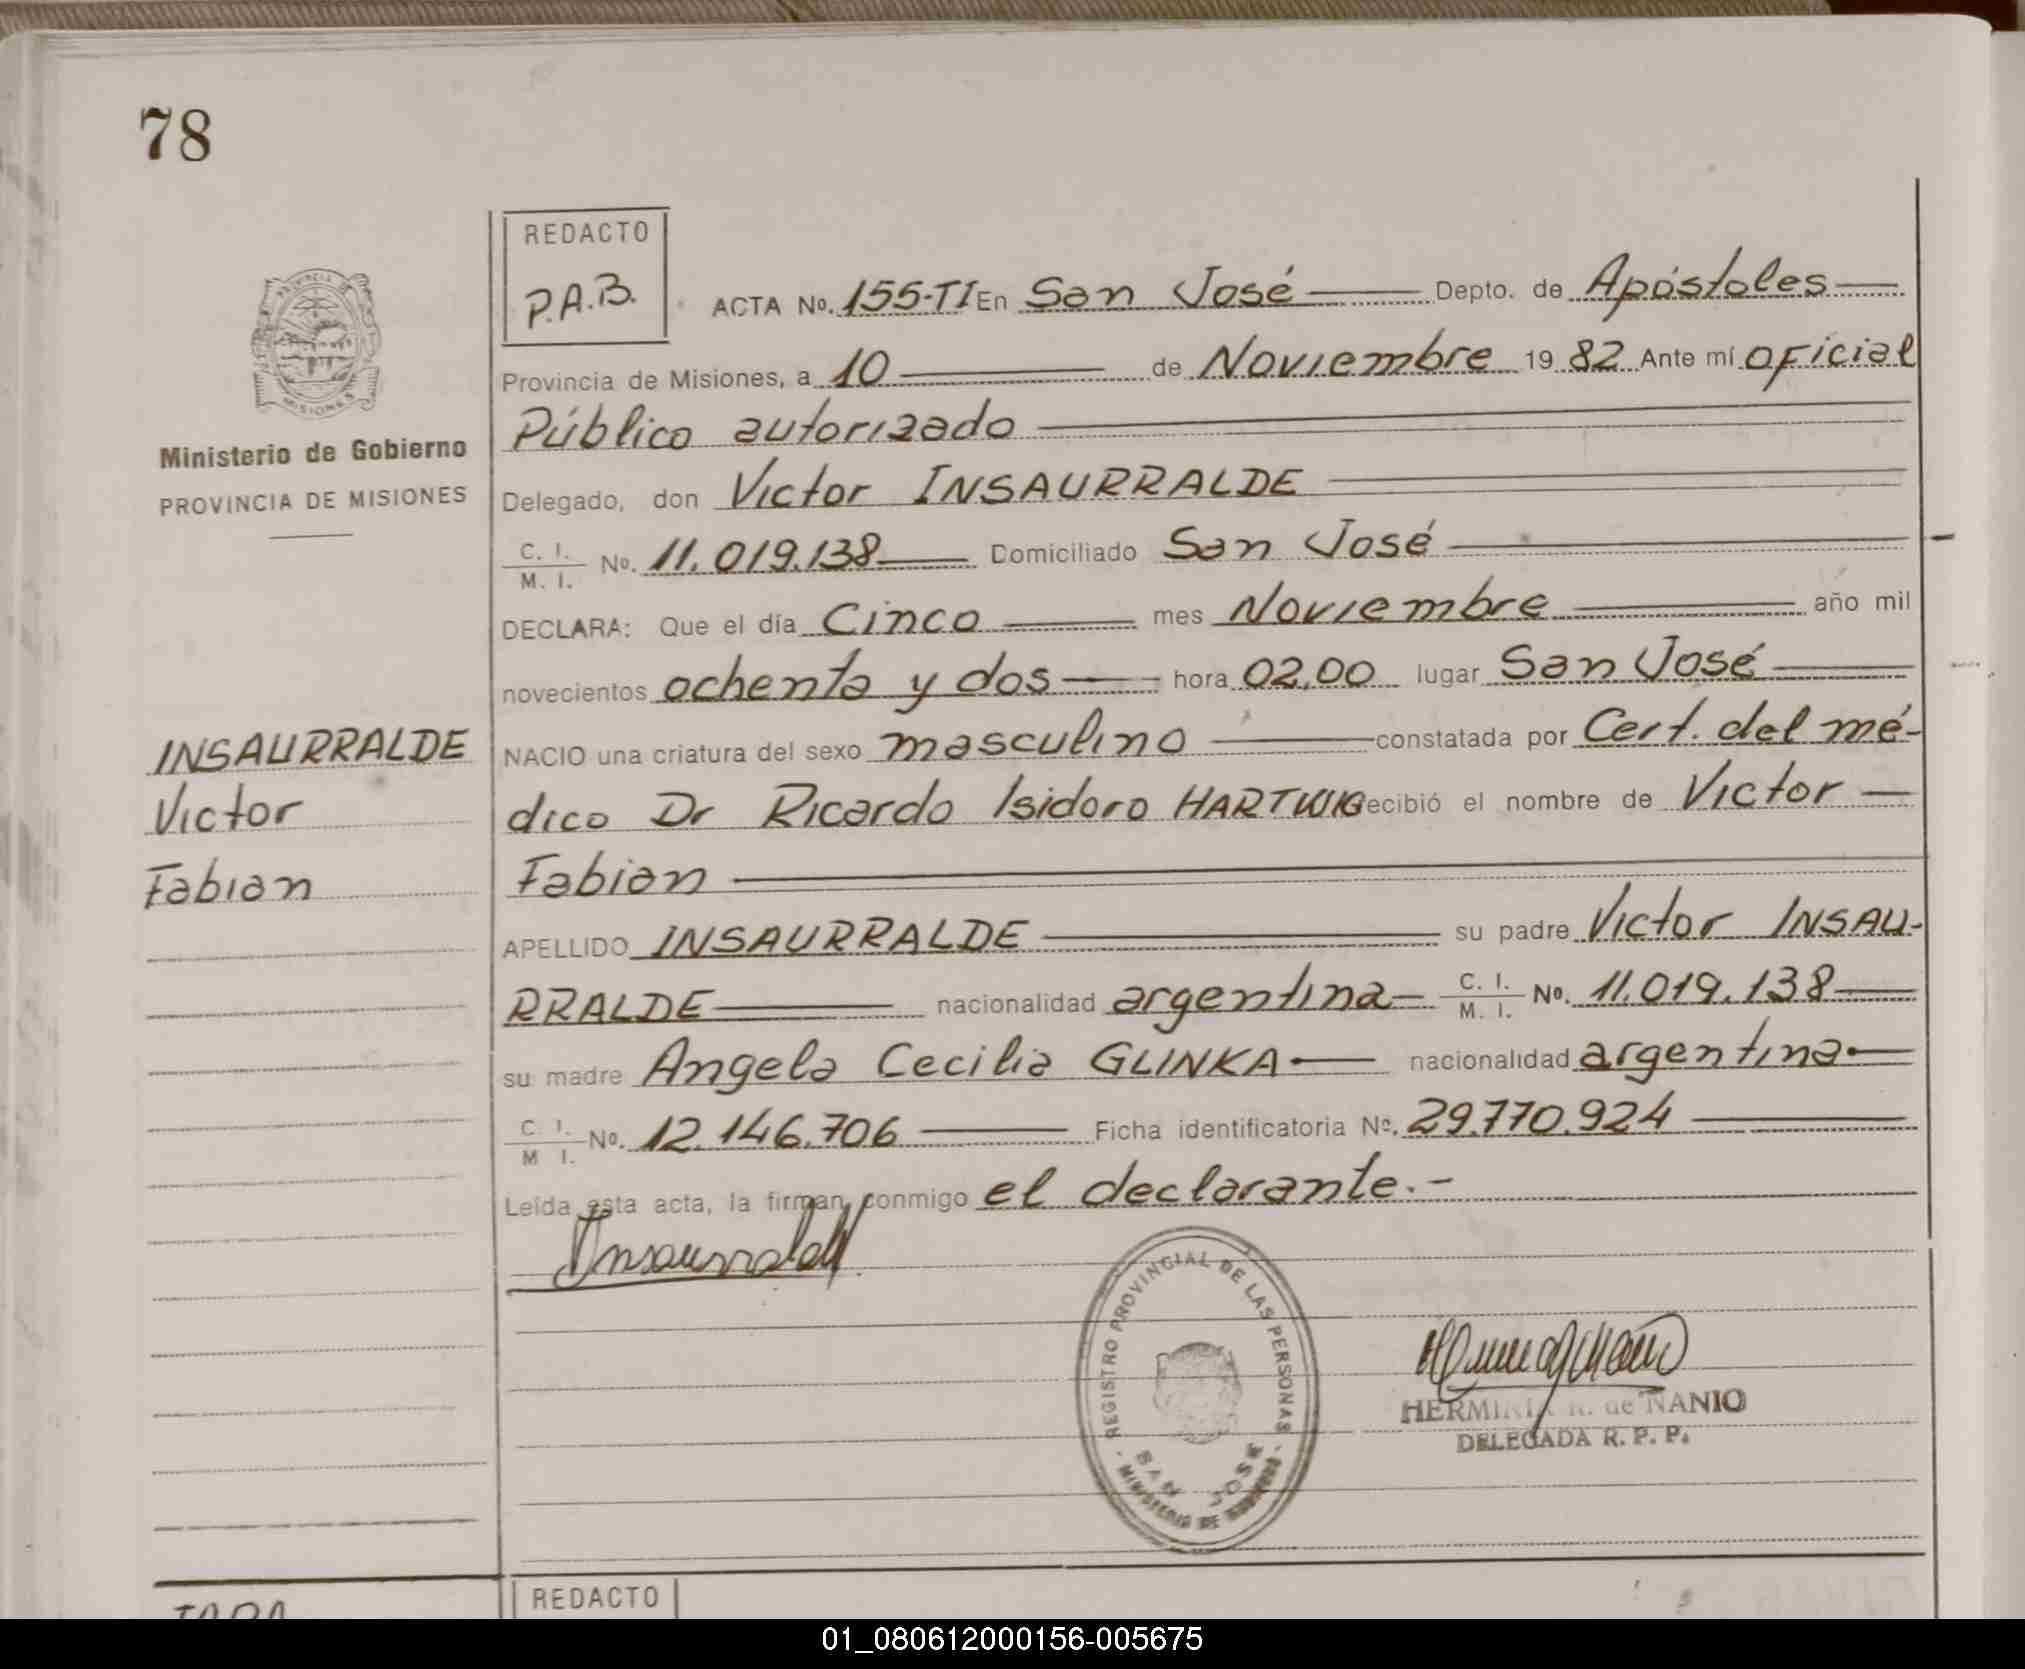 78
REDACTO
P.A.B.
ACTA No. 155-TI En San José Depto. de Apóstoles
Provincia de Misiones, a 10 de Noviembre 19 82 Ante mí oficial
Público autorizado
Ministerio de Gobierno
PROVINCIA DE MISIONES
Delegado, don Victor INSAURRALDE
C. I. / M. I. No. 11.019.138 Domiciliado San José
DECLARA: Que el día Cinco mes Noviembre año mil
novecientos ochenta y dos hora 02,00 lugar San José
INSAURRALDE
Victor
Fabian
NACIO una criatura del sexo masculino constatada por Cert. del mé-
dico Dr Ricardo Isidoro HARTWIG ecibió el nombre de Victor
Fabian
APELLIDO INSAURRALDE su padre Victor INSAU-
RRALDE nacionalidad argentina C. I. / M. I. No. 11.019.138
su madre Angela Cecilia GLINKA nacionalidad argentina
C. I. / M I. No. 12.146.706 Ficha identificatoria No. 29.770.924
Leída esta acta, la firman conmigo el declarante.-
Insaurralde
REGISTRO PROVINCIAL DE LAS PERSONAS
SAN JOSE
MINISTERIO DE GOBIERNO
HERMINIA R. de NANIO
DELEGADA R. P. P.
REDACTO
01_080612000156-005675